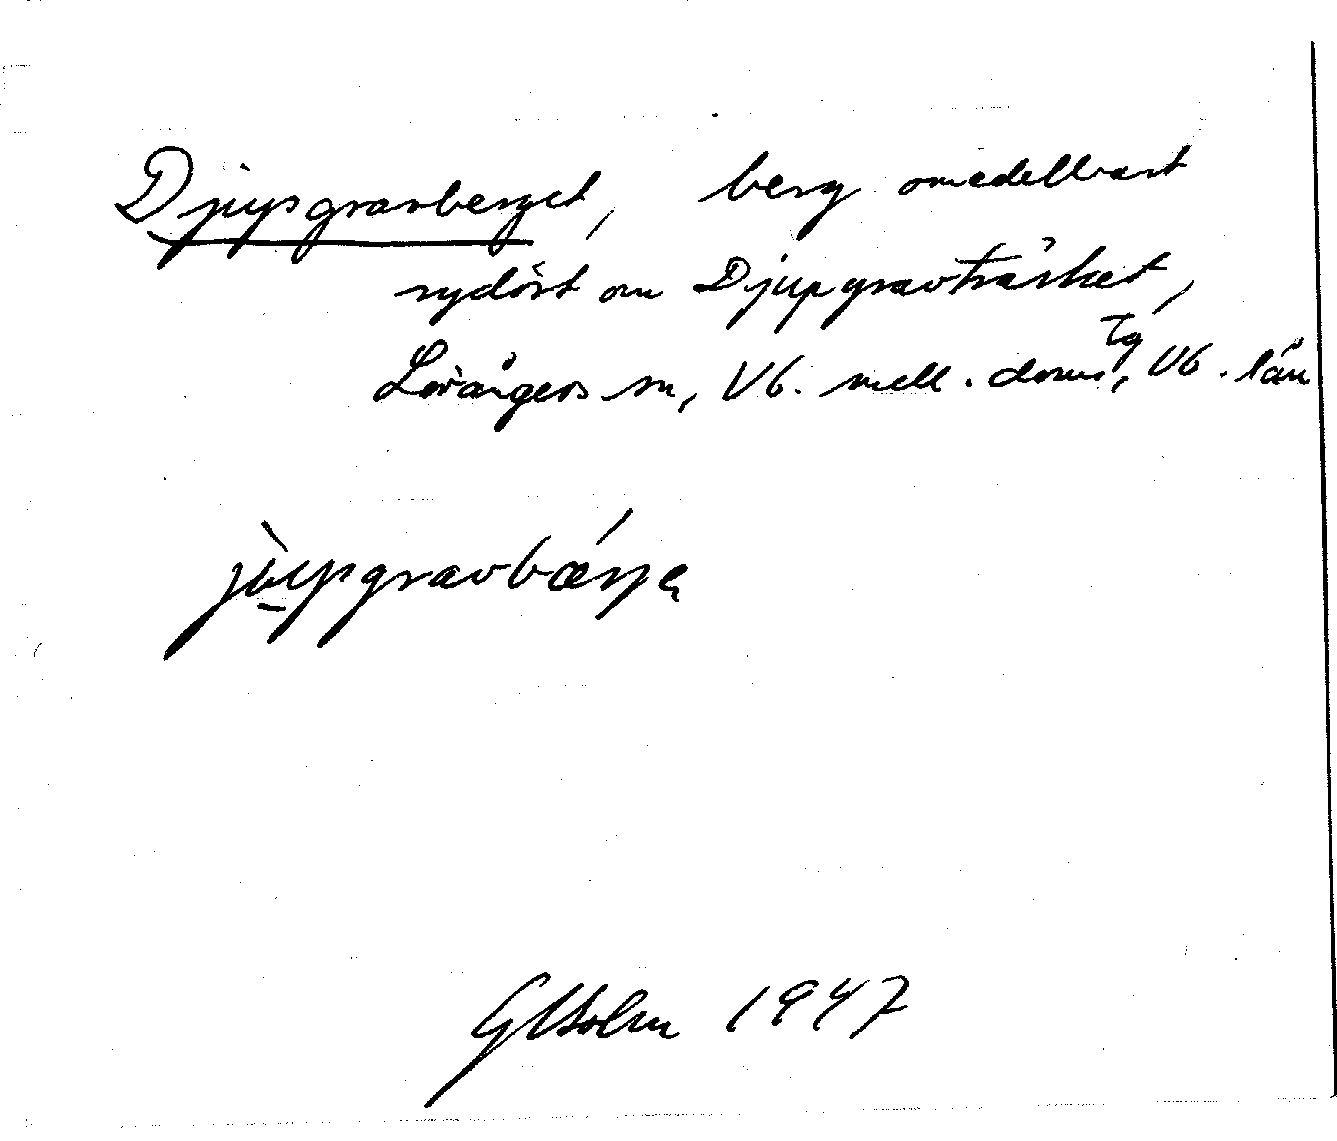 Djupgravberget, berg omedelbart
sydöst om Djupgravträsket,
Lövångers sn, Vb. mell. doms Tg, Vb. län
jùpgravbǽrjə
GHolm 1947